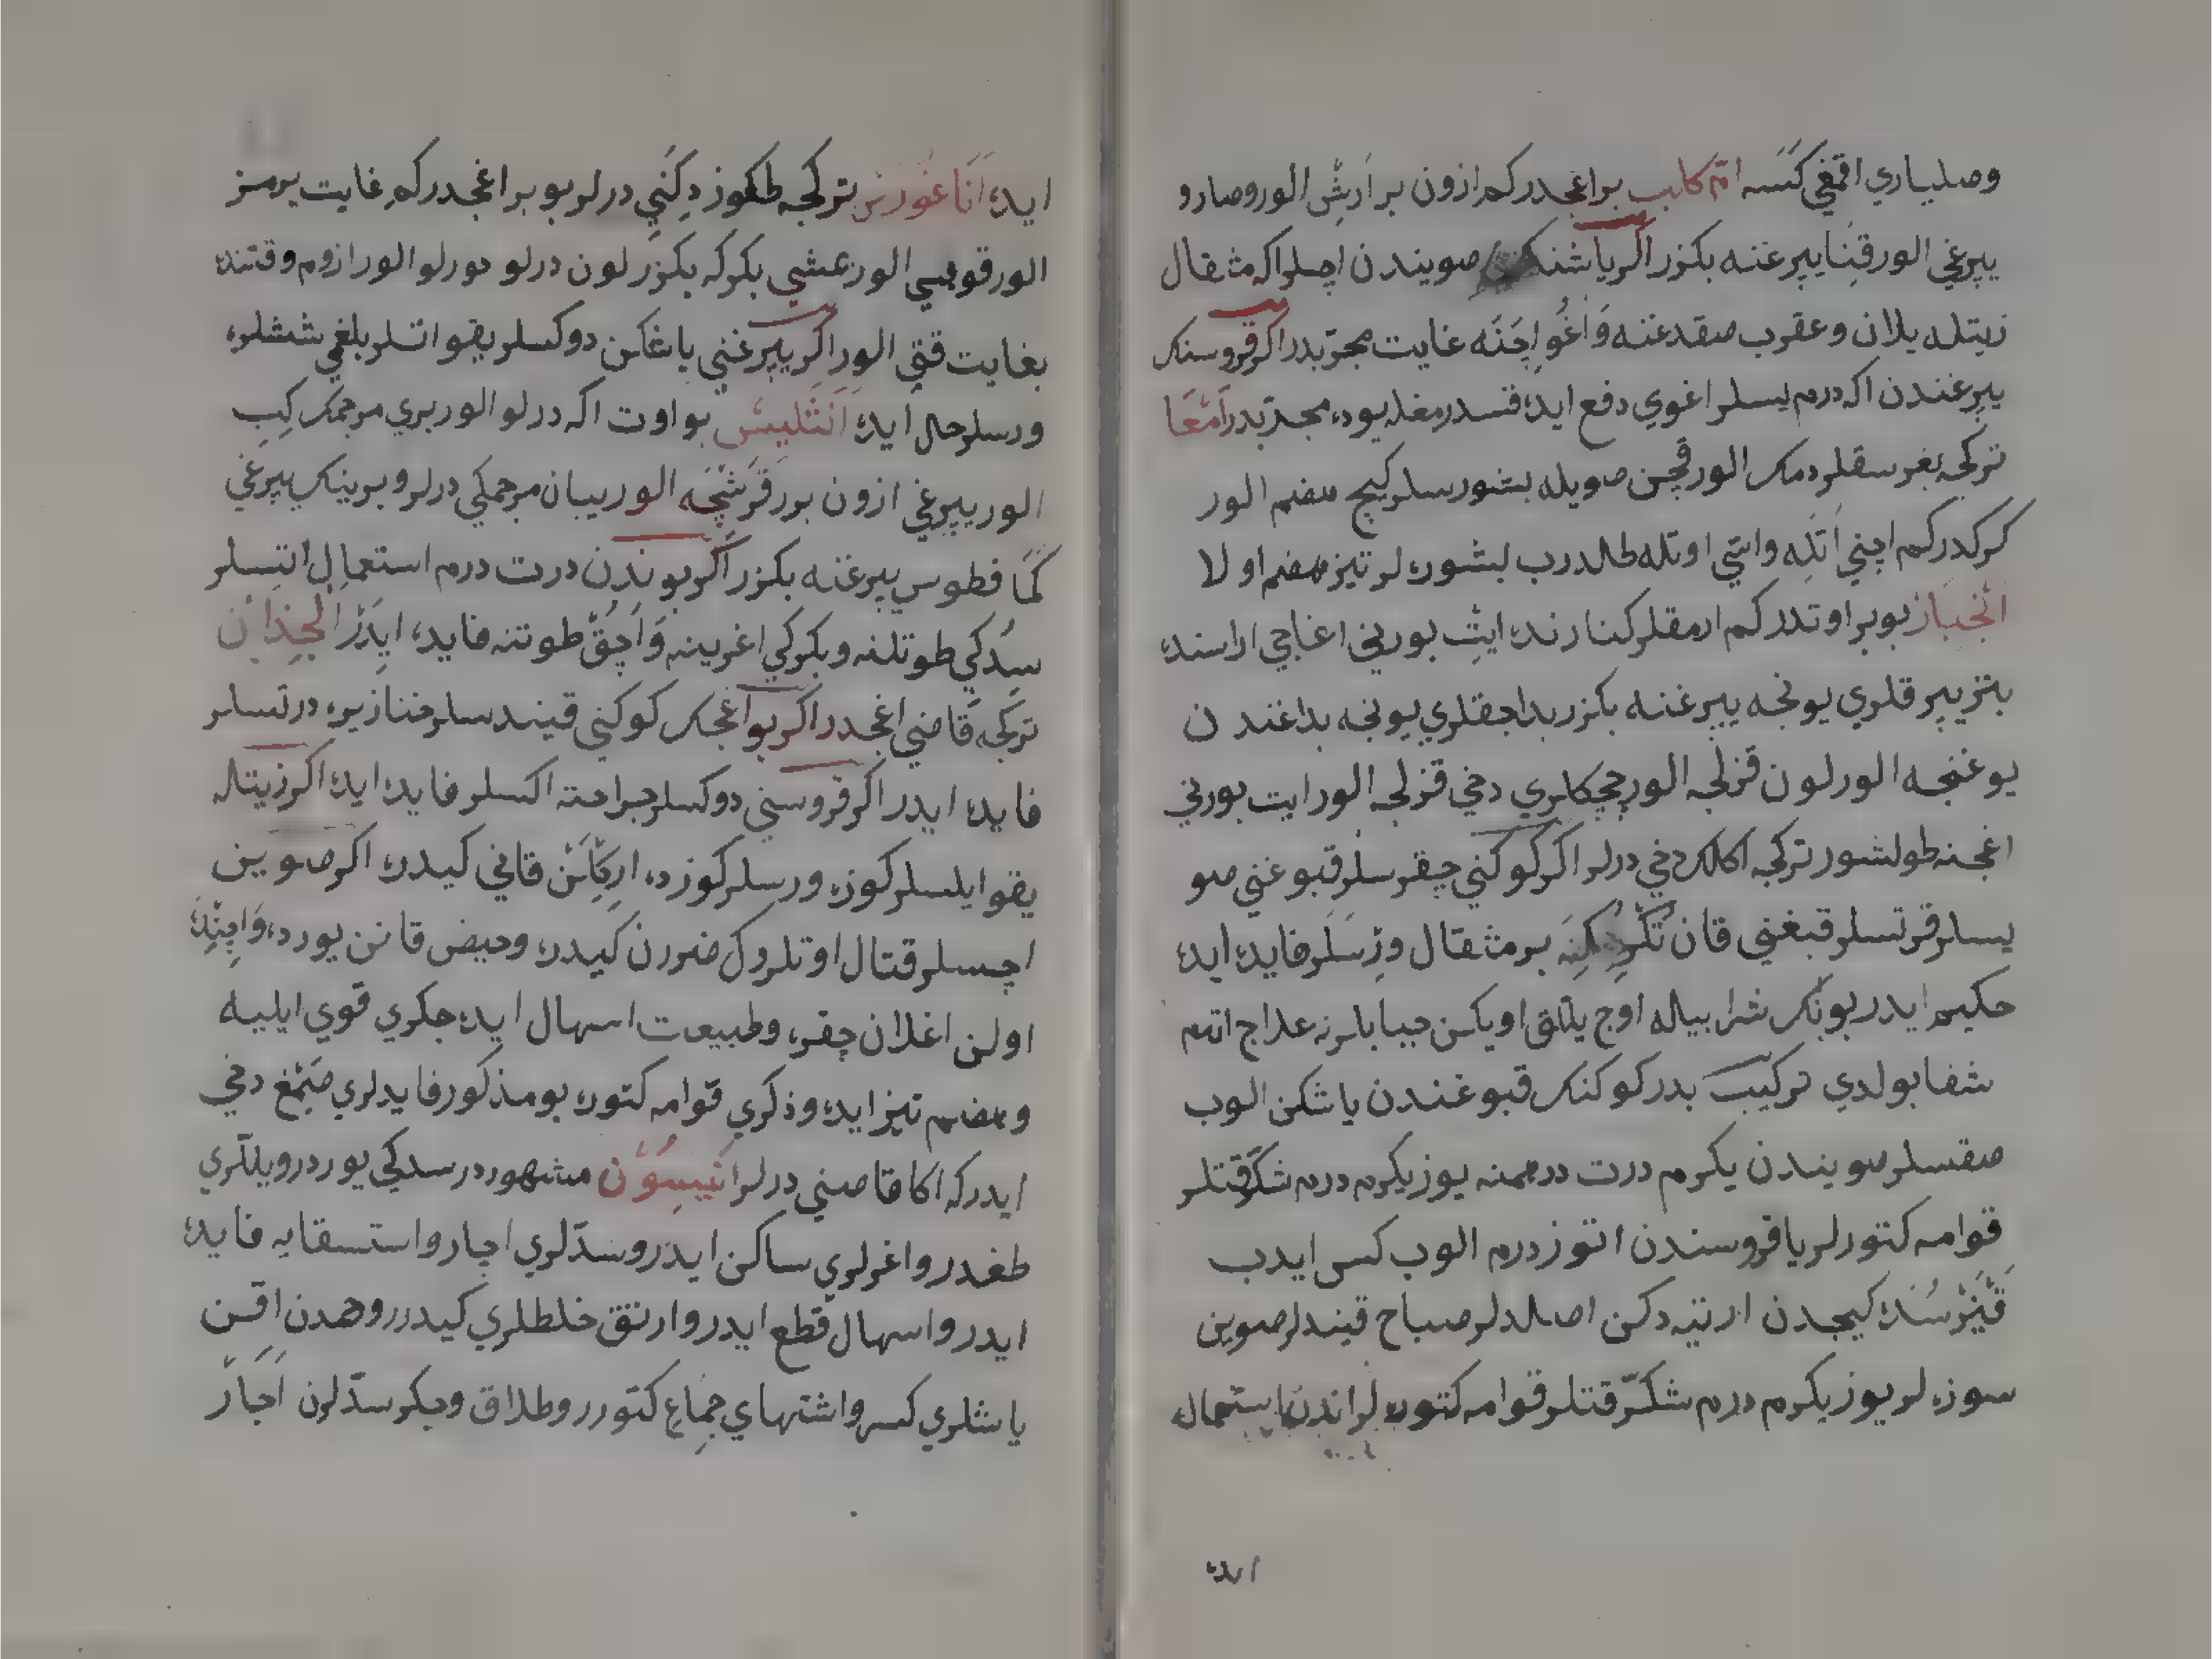 وصلیاري اقمغي کسه امّ کلب بر اغجدر کم ازون بر ارش الور وصارو
يپرغي الور قنا يپرغنه بکزر اکر ياشنک صويندن اچلر اکه مثقال
زيتله يلان وعقرب صقدغنه وَاغُو اِچَنَه غايت مجرّبدر اکر قروسنک
يپرغندن اکه درم يسلر اغوي دفع ايده قسدرمغله بوده مجرّبدر اَمعَا
ترکجه بغرسقلر دمک الور قچن صويله بشورسلر کيج هضم الور
کرکدرکم اچني اَتله واتي اوتله طلدرب بشوره لر تيز هضم اولا
انجباز بو بر اوتدر کم ارمقلر کنارنده ايت بورني اغاجي اراسنده
بتز يپرقلري يونجه يپرغنه بکزر بداجقلري يونجه بداغندن
يوغنجه الور لون قزلجه الور چچکلري دخي قزلجه الور ايت بورني
اغجنه طولشور ترکجه اکلک دخي درلر اکر کوکني چقرسلر قبوغني صو
يسلر قرتسلر قبغني قان تُکرکنَه بر مثقال وِرسَلر فايده ايده
حکيم ايدر بونک شرابياله اوج ييللق اويکن جبابلرنه علاج اتدم
شفا بولدي ترکيب بدر کوکنک قبوغندن ياشکن الوب
صقسلر صويندن يکرم درت درهمنه يوز يکرم درم شکر قتلر
قوامه کتورلر يا قروسندن اتوز درم الوب کسي ايدب
قَيْنَرْ سُنده کيجدن ارتيه دکن اصلدلر صباح قيندلر صوين
سوزه لر يوز يکرم درم شکّر قتلر قوامه کتوره لر اندن استعمال
ايده
ايده اَنَاغُورِز ترکجه طکوز دِکَني درلر بو بر اغجدرکه غايت يرمز
الور قوبسي الور عشي بکرکه بکزر لون درلو دورلو الور ازوم وقتنده
بغايت قتي الور اکر يپرغني ياشکن دوکسلر يقو اتسلر بلغمي ششلره
ورسلر حل ايده اَنَثَليس بو اوت اکه درلو الور بري مرجمک کِبِ
الور يپرغي ازون بور قرشچه الور يبان مرجمکي درلر وبرينک يپرغي
کمَافطوس يپرغنه بکزر اکر بوندن درت درم استعمال اتسلر
سِدُکي طوتلنه وبکرکي اغرينه وَاَچُقْ طوتنه فايده ايدَرْ الجذان
ترکجه قاضي اغجدر اکر بو اغجک کوکني قيندسلر خنازيره درتسلر
فايده ايدر اکر قروسني دوکسلر جراحته اکسلر فايده ايده اکر زيتله
يقو ايلسلر کوزه ورسلر کوزده ارکلَنْ قاني کيدره اکر صوين
اچسلر قتال اوتلروک ضررن کيدره وحيض قانن يورده وَاچِنْدَه
اولن اغلان چقره وطبيعت اسهال ايده جکري قوي ايليه
وهضم تيز ايده وذکري قوامه کتوره بو مذکور فايدلري صَمغ دخي
ايدرکه اکا قاصني درلر انيسُون مشهوردر سدکي يوردر ويللري
طغدر واغرلري ساکن ايدر وسدّلري اچار واستسقايه فايده
ايدر واسهال قطع ايدر وارتق خلطلري کيدرر وهمدن اقن
ياشلري کسر واشتهاي جِماع کتورر وطلاق وجکر سدّلرن اَجَارْ